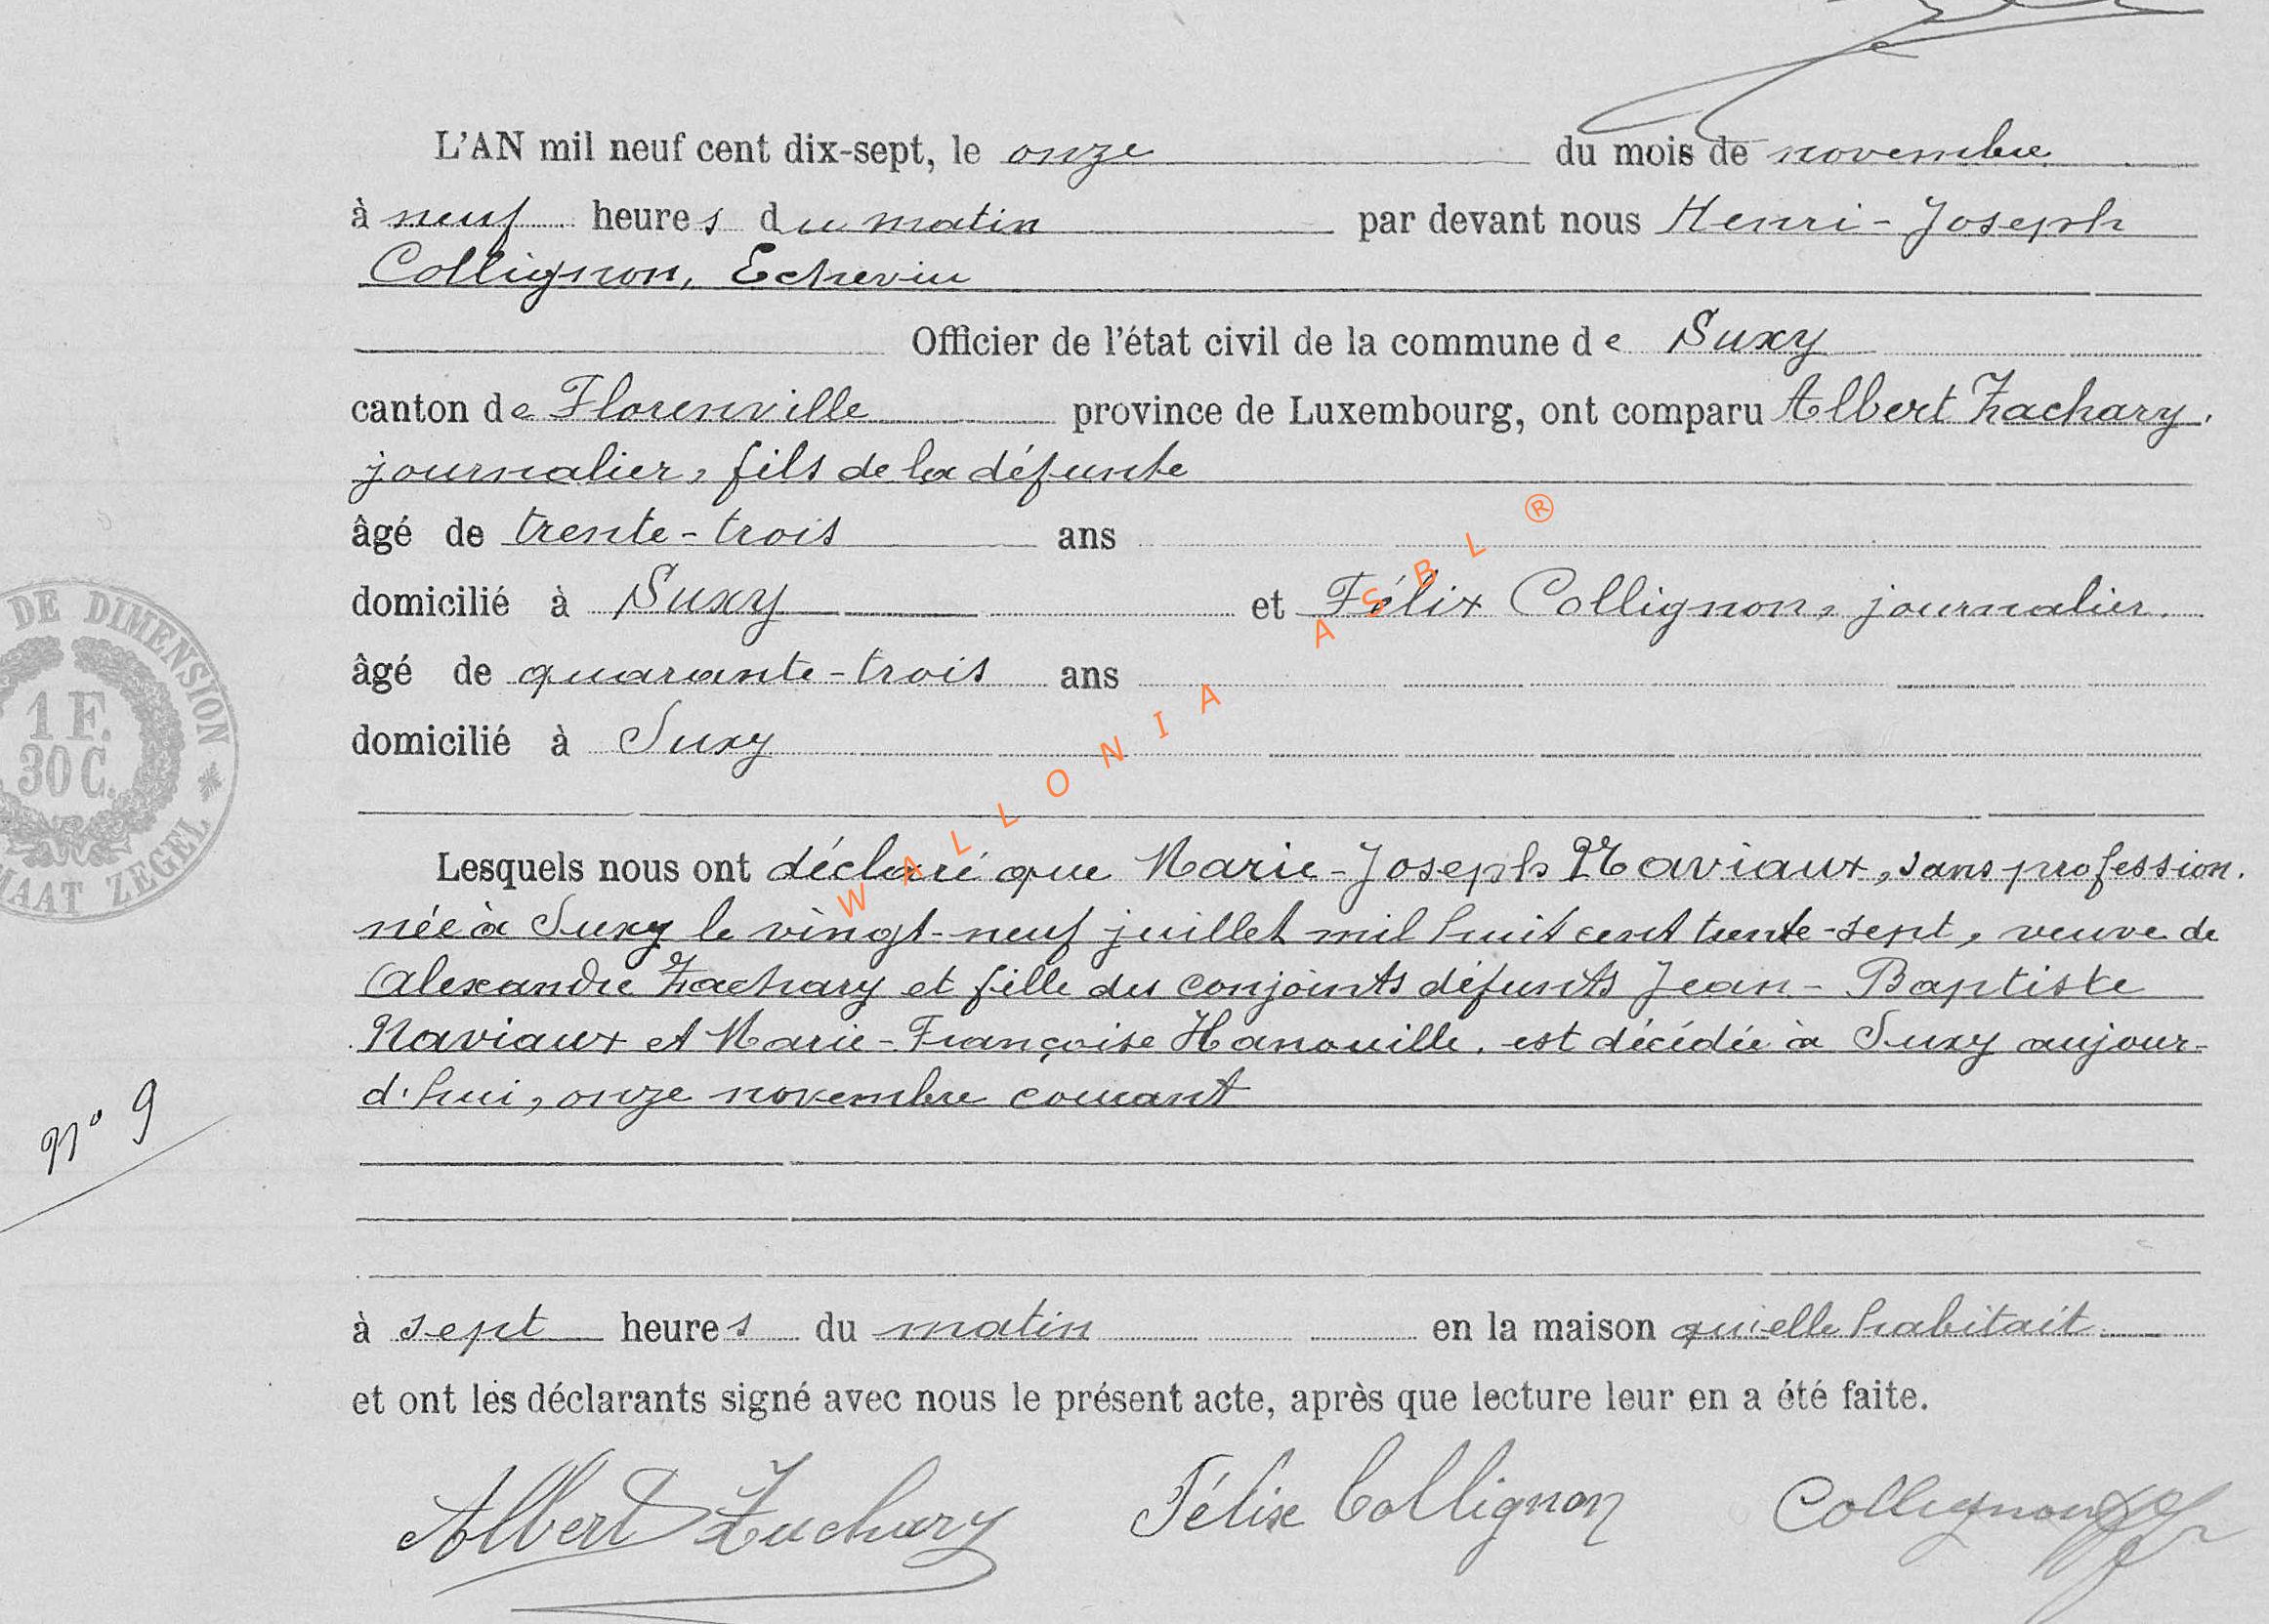 L'AN mil neuf cent dix-sept, le onze du mois de novembre
à neuf heures du matin par devant nous Henri-Joseph
Collignon, Echevin
Officier de l'état civil de la commune de Suxy
canton de Florenville province de Luxembourg, ont comparu Albert Zachary,
journalier, fils de la défunte
âgé de trente-trois ans
domicilié à Suxy et Félix Collignon, journalier,
âgé de quarante-trois ans
domicilié à Suxy
Lesquels nous ont déclaré que Marie-Joseph Naviaux, sans profession,
née à Suxy le vingt-neuf juillet mil huit cent trente-sept, veuve de
Alexandre Zachary et fille des conjoints défunts Jean-Baptiste
Naviaux et Marie-Françoise Hanouille, est décédée à Suxy aujour-
d'hui, onze novembre courant
à sept heures du matin en la maison qu'elle habitait
et ont les déclarants signé avec nous le présent acte, après que lecture leur en a été faite.
Albert Zachary Félix Collignon Collignon
N° 9
DE DIMENSION
1 F.
30 C.
ZEGEL
WALLONIA ASBL ®